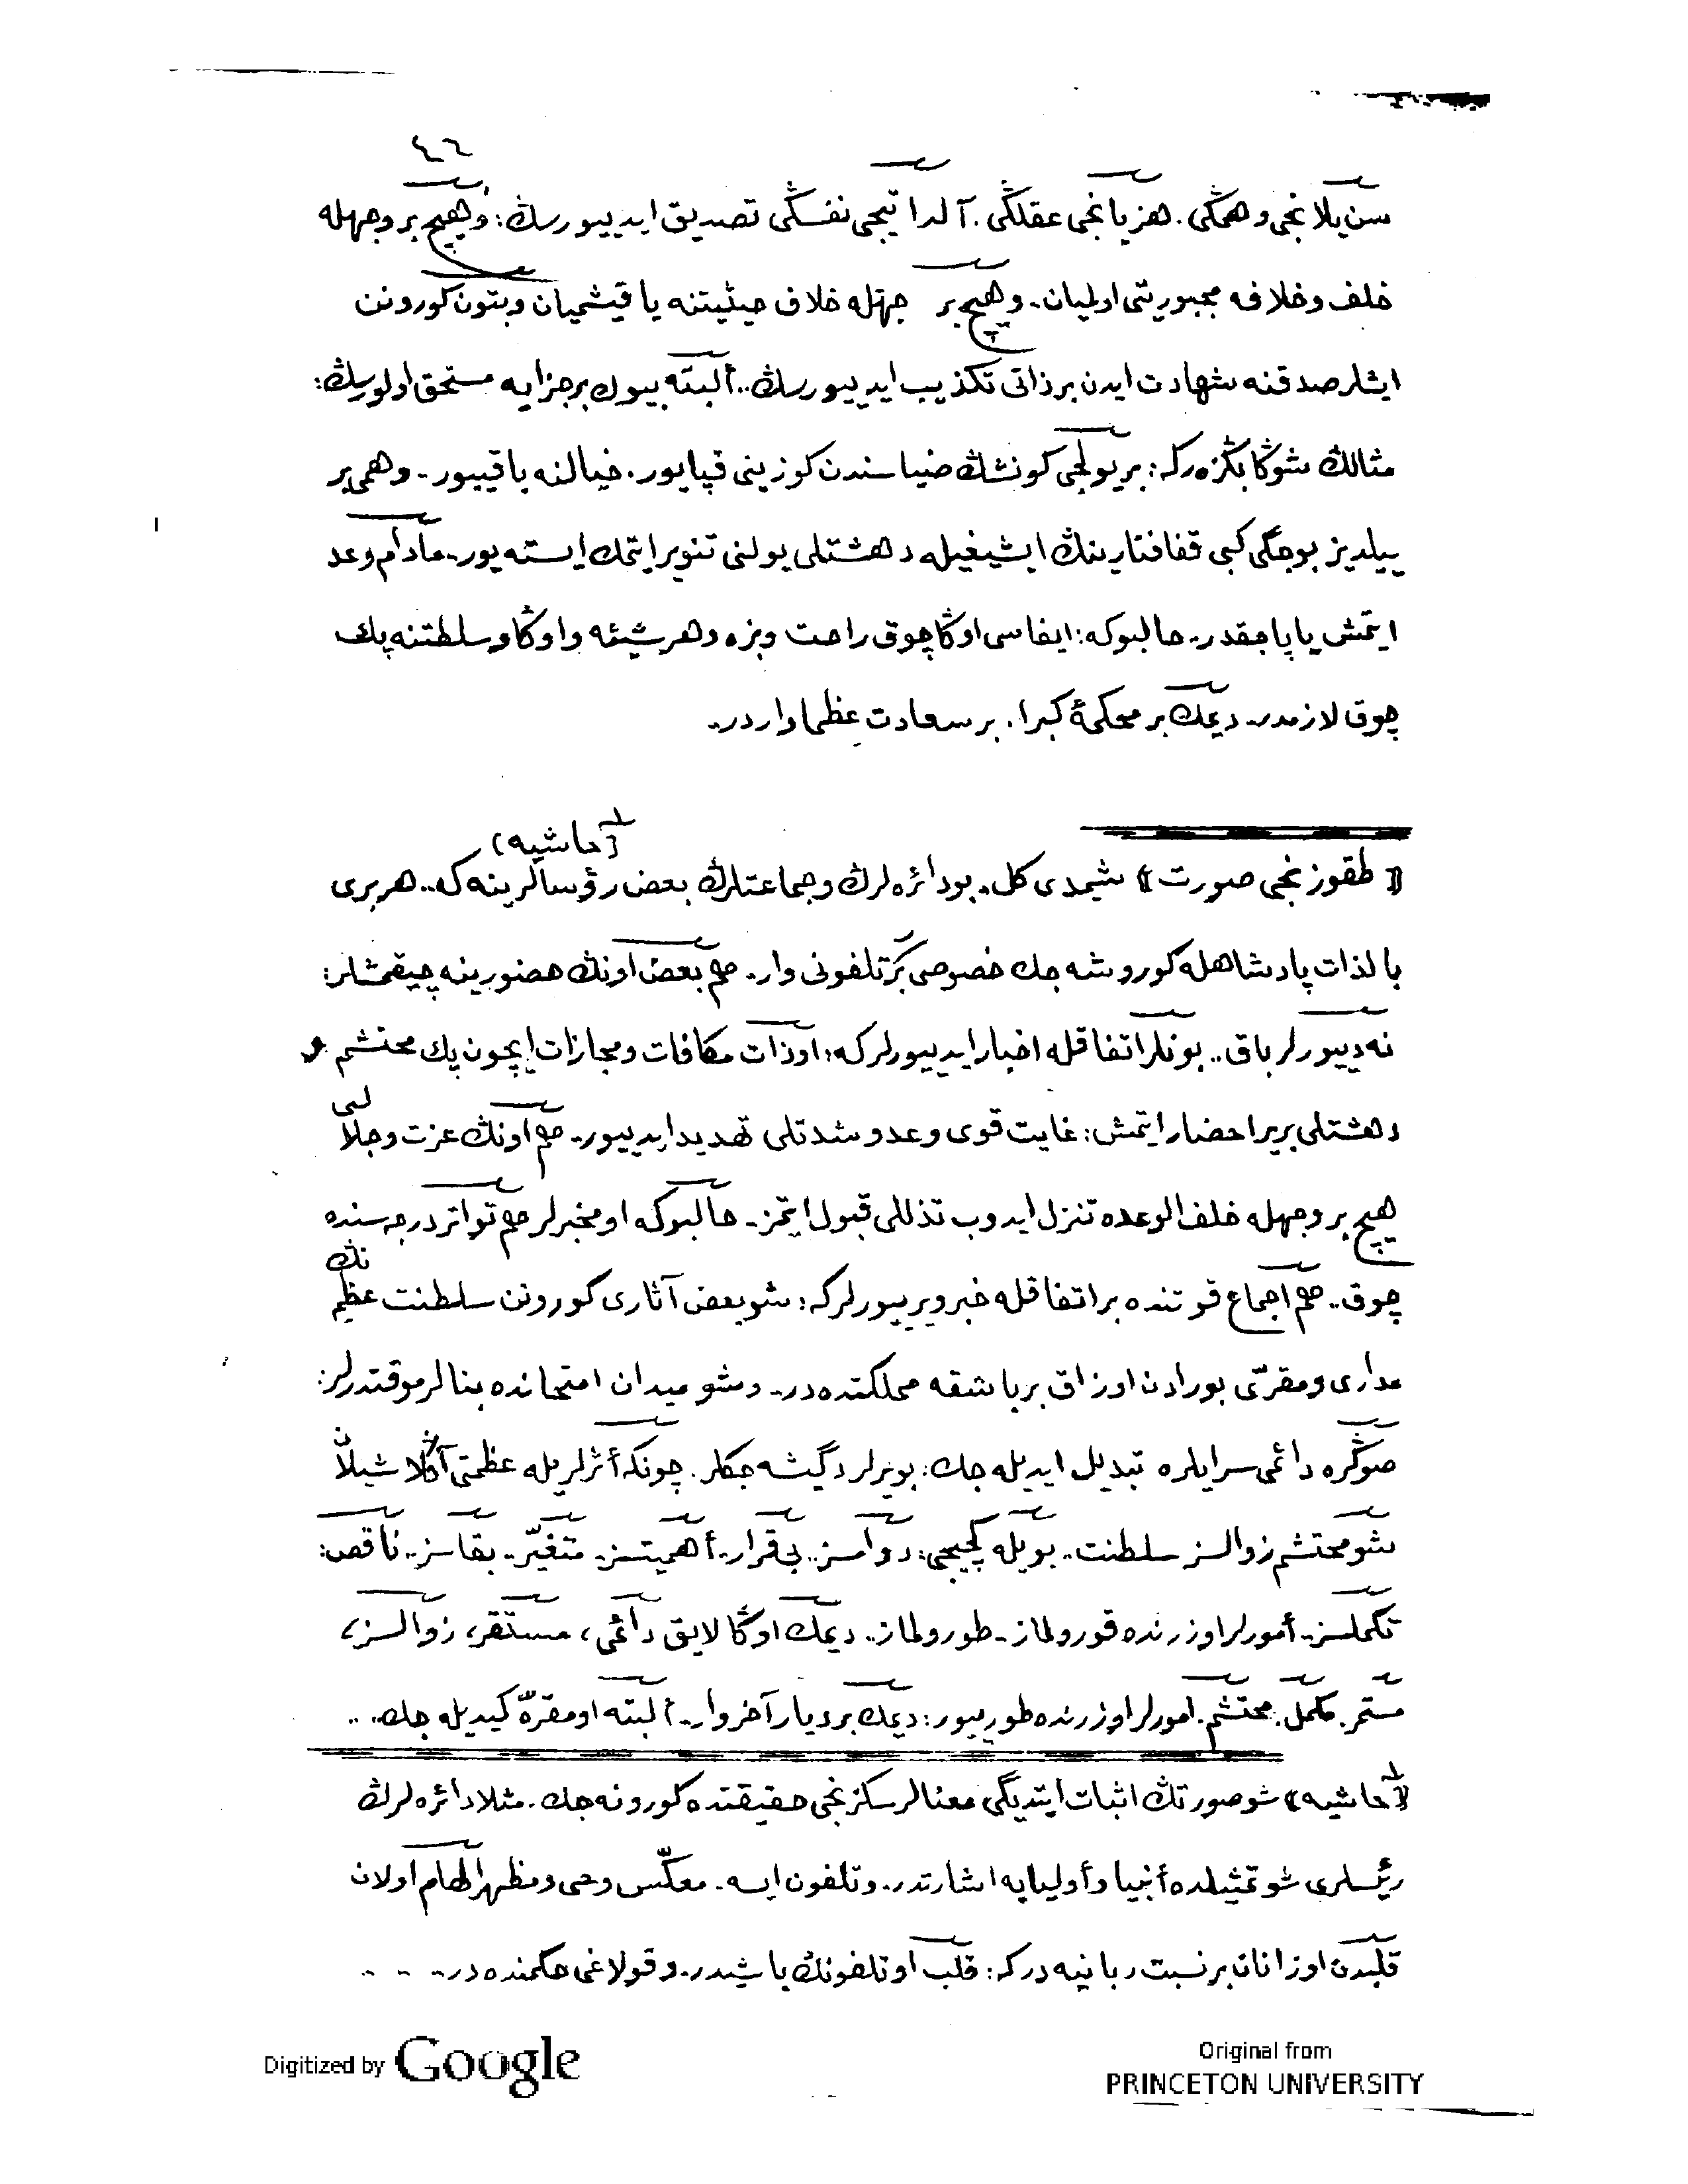 ٤٦
سن يلانجی وهمڭی. هزيانجی عقلڭی. آلداتيجی نفسڭی تصديق ايدييورسڭ: وهيچ بر وجهله
خلف وخلافه مجبوريتی اولميان. وهيچ بر جهتله خلاف حيثيتنه ياقيشميان وبتون كورونن
ايشلر صدقنه شهادت ايدن بر ذاتی تكذيب ايدييورسڭ.. ألبته بيوك بر جزايه مستحق اولورسڭ:
مثالڭ شوڭا بڭزه‌ركه: بر يولجی كونشڭ ضياسندن كوزينی قپايور. خيالنه باقييور. وهمی بر
ييلديز بوجگی كبی قفافنارينڭ ايشيغيله دهشتلی يولنی تنوير ايتمك ايسته‌يور. مادام وعد
ايتمش ياپاجقدر. حالبوكه: ايفاسی اوڭا چوق راحت وبزه وهر شيئه واوڭا وسلطنتنه پك
چوق لازمدر. ديمك بر محكمۀ كبرا. بر سعادت عظما واردر.
(حاشيه)
﴿ طقوزنجی صورت ﴾ شيمدی كل. بو دائره‌لرڭ وجماعتلرڭ بعض رؤسالرينه كه.. هر بری
بالذات پادشاهله كوروشه‌جك خصوصی بر تلفونی وار. هم بعض اونڭ حضورينه چيقمشلر:
نه دييورلر باق.. بونلر اتفاقله اخبار ايدييورلركه: اوذات مكافات ومجازات ايچون پك محتشم و
دهشتلی بر ير احضار ايتمش: غايت قوی وعد و شدتلی تهديد ايدييور. هم اونڭ عزت وجلالی
هيچ بر وجهله خلف الوعده تنزل ايدوب تذللی قبول ايتمز. حالبوكه او مخبرلر هم تواتر درجه‌سنده
چوق.. هم اجماع قوتنده بر اتفاقله خبر ويرييورلركه: شو بعض آثاری كورونن سلطنت عظيمه‌نڭ
مداری ومقرّی بورادن اوزاق بر باشقه مملكتده‌در. وشو ميدان امتحانده بنالر موقتدرلر:
صوڭره دائمی سرايلره تبديل ايديله‌جك: بو يرلر دگيشه‌جكلر. چونكه أثرلريله عظمتی آڭلاشيلان
شو محتشم زوالسز سلطنت.. بويله گچيجی: دوامسز.. بی قرار. أهميتسز. متغيّر.. بقاسز.. ناقص:
تكملسز.. أمورلر اوزرنده قورولماز. طورولماز.. ديمك اوڭا لايق دائمی، مستقر، زوالسز،
مستمر. مكمل. محتشم. امورلر اوزرنده طورييور: ديمك بر ديار آخر وار. ألبته او مقرّه كيديله‌جك..
(حاشيه) شو صورتڭ اثبات ايتديگی معنالر سكزنجی حقيقتده كورونه‌جك. مثلا دائره‌لرڭ
رئيسلری شو تمثيلده أنبيا وأوليايه اشارتدر. وتلفون ايسه. معكّس وحی ومظهر الهام اولان
قلبدن اوزانان بر نسبت ربانيه‌دركه: قلب او تلفونڭ باشيدر. وقولاغی حكمنده‌در. . . .
Digitized by Google
Original from
PRINCETON UNIVERSITY